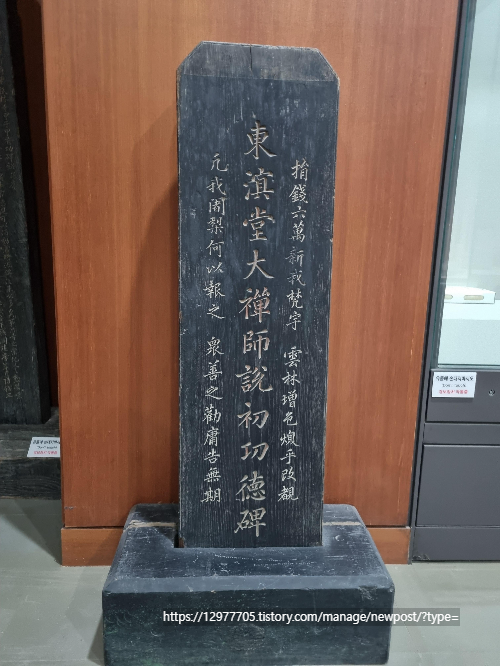 東滇堂大禪師說初功德碑
捐錢六萬新我梵宇 雲林增色煥乎改觀
凡我闍梨何以報之 衆善之勸庸告無期
유물에 손대지마시오
https://12977705.tistory.com/manage/newpost/?type=